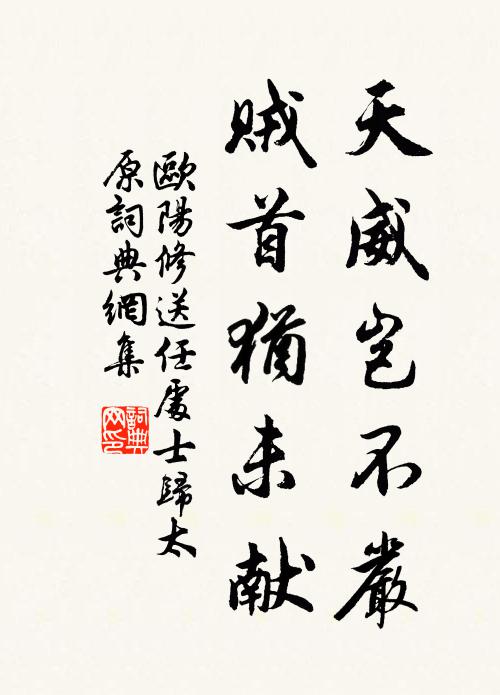 天威岂不嚴
賊首猶未献
歐陽修送任處士歸太
原詞典網集
詞典网印